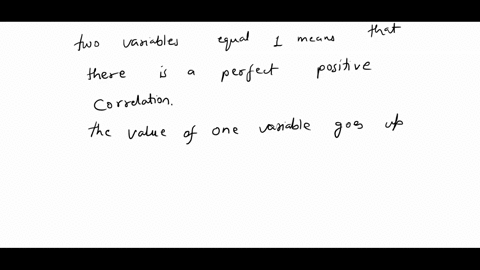 two variables equal 1 means that
there is a perfect positive
Correlation.
the value of one variable goes up